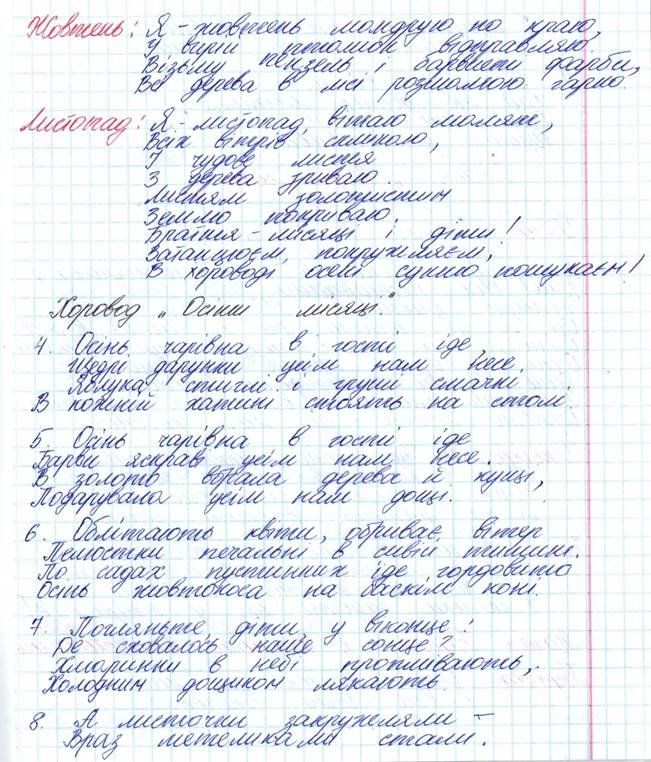 Жовтень: Я - жовтень мандрую по краю,
У вирій пташок відправляю.
Візьму пензель і барвисті фарби,
Всі дерева в лісі розмалюю гарно.
Листопад: Я - листопад, вітаю малят,
Всіх вітрів скликаю,
І чудове листя
З дерева зриваю.
Листям золотистим
Землю покриваю.
Братця - місяці і діти!
Затанцюєм, покружляєм,
В хороводі осені сумно пошукаєм!
Хоровод „Осінні місяці."
4. Осінь чарівна в гості іде,
Щедрі дарунки усім нам несе.
Яблука стиглі і груші смачні
В кожній хатині стоять на столі.
5. Осінь чарівна в гості іде
Барви яскраві усім нам несе.
В золото вбрала дерева й кущі,
Подарувала усім нам дощі.
6. Облітають квіти, обриває вітер
Пелюстки печальні в сивій тишині.
По садах пустинних іде гордовито
Осінь жовтокоса на баскім коні.
7. Погляньте, діти, у віконце!
Де сховалось наше сонце?
Хмаринки в небі пропливають,
Холодним дощиком лякають.
8. А листочки закружляли -
Враз метеликами стали.